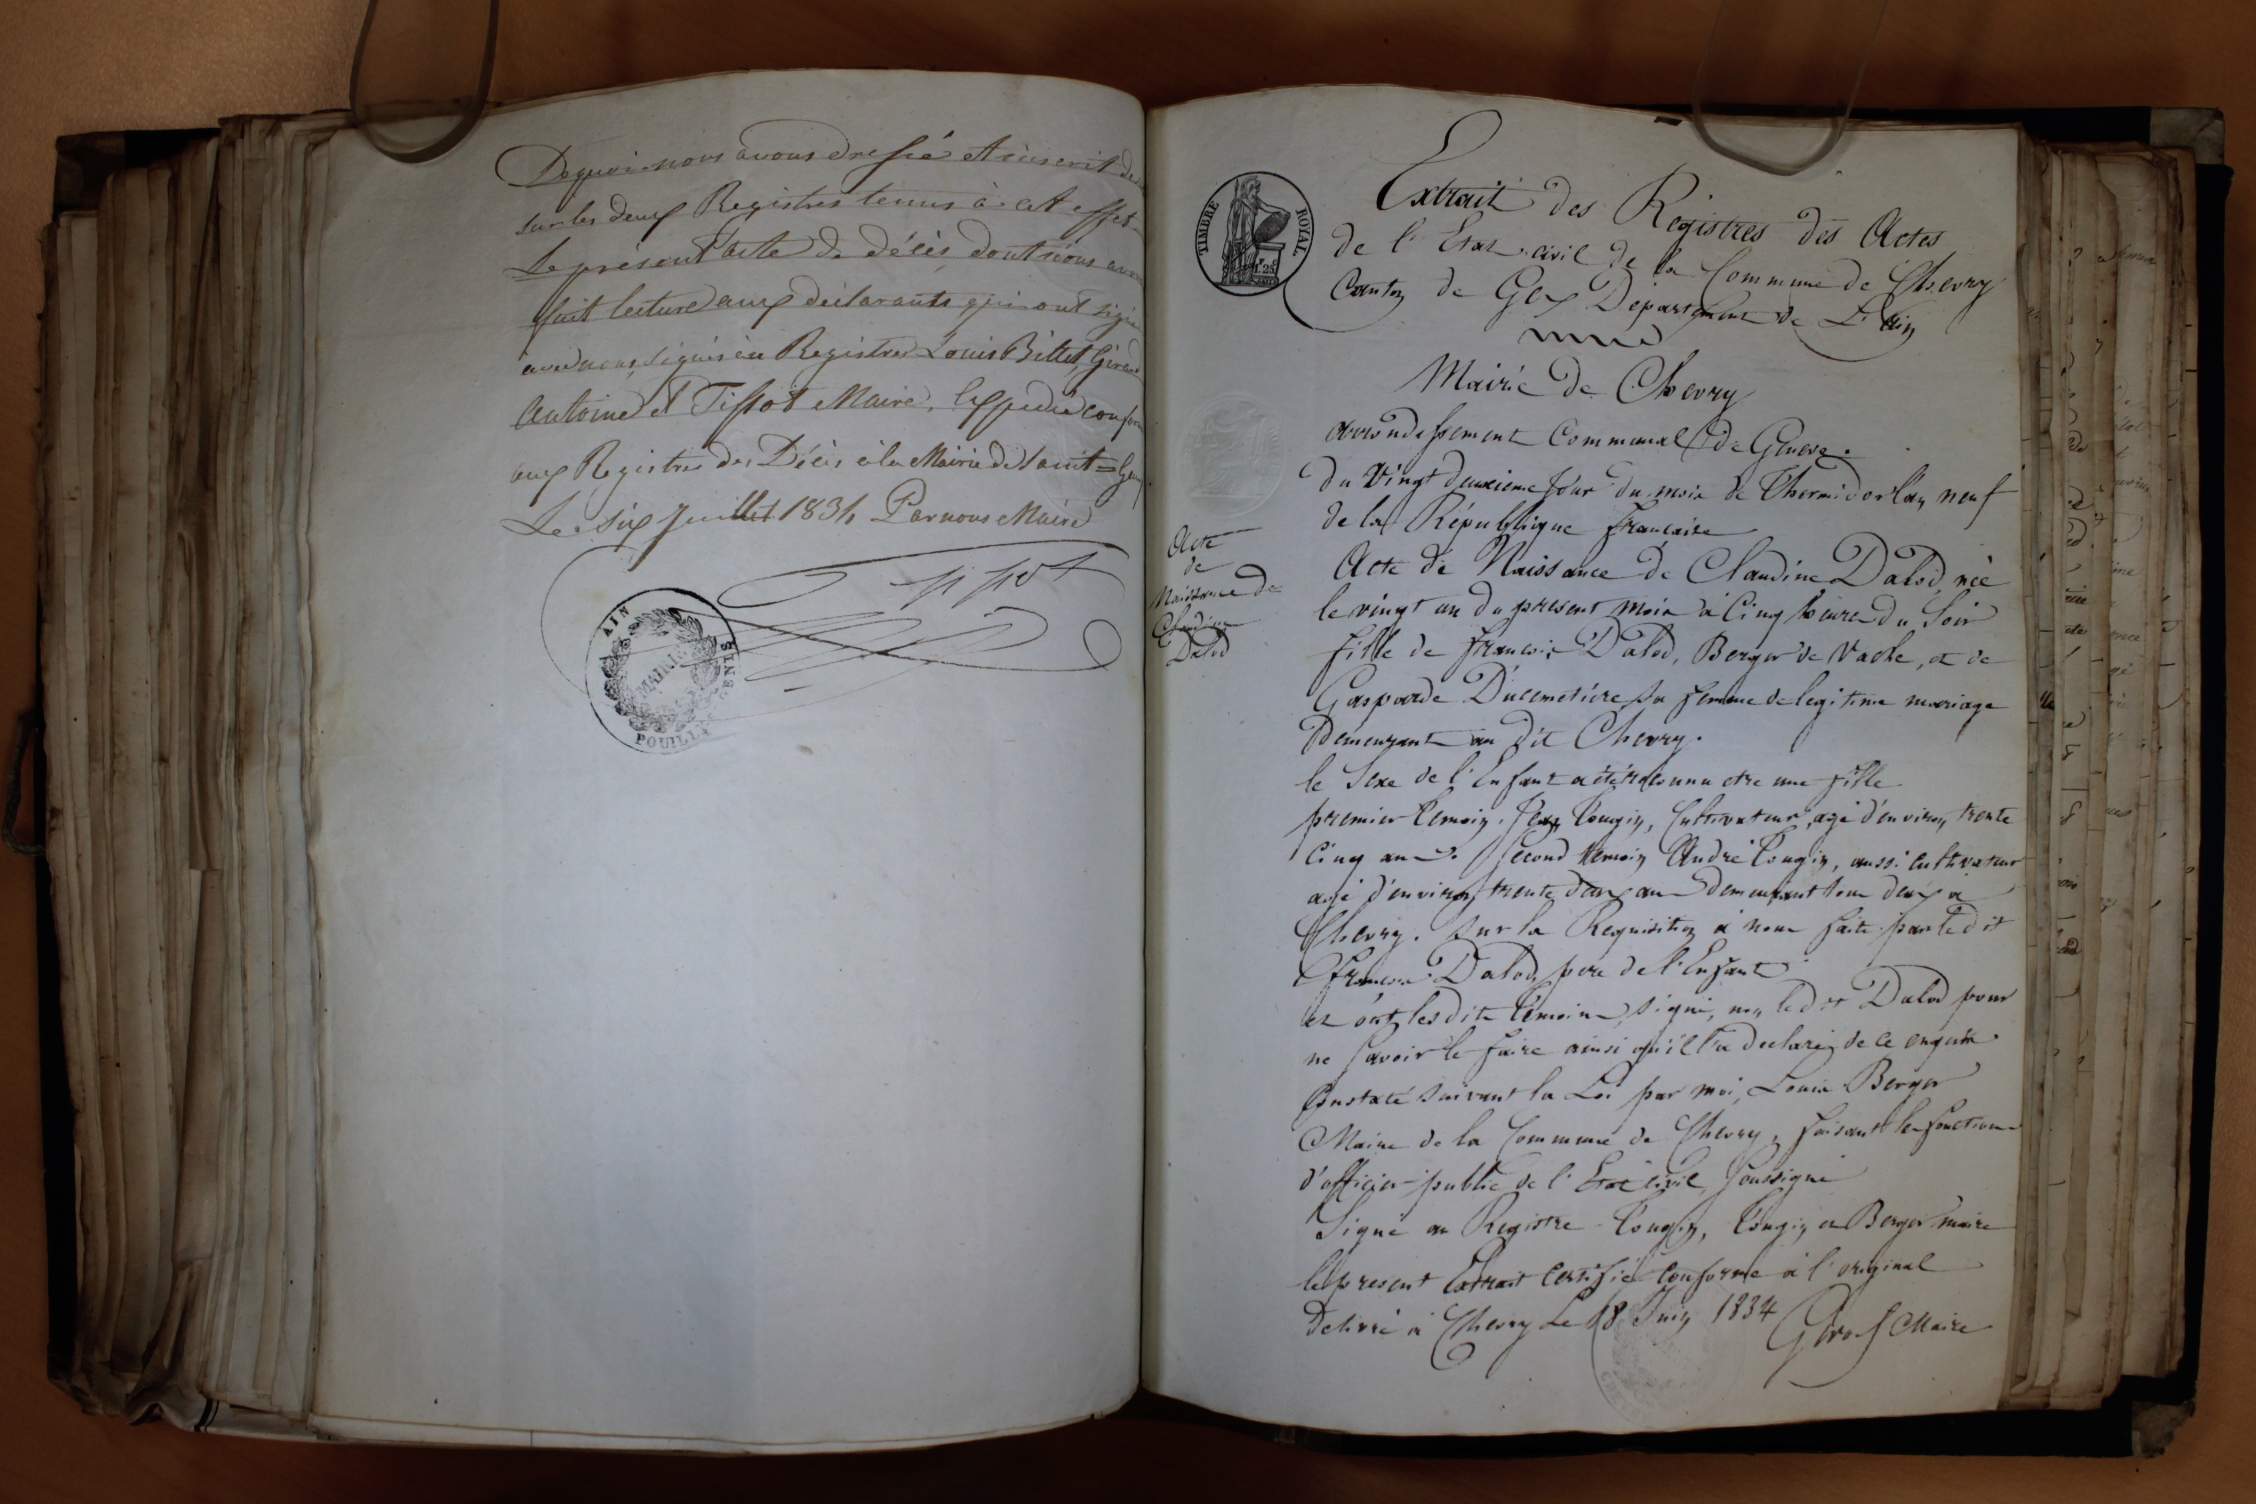 De quoi nous avons dressé et inscrit de
sur les deux Registres tenus à cet effet
Le présent acte de décès dont nous avons
fait lecture aux déclarants qui ont signé
avec nous, signés au Registre Louis Billet, Girod
Antoine et Tissot Maire, Expédié conforme
aux Registres des Décès à la Mairie de Saint=Genis
Le six Juillet 1834 Par nous Maire
Tissot
AIN
MAIRIE
POUILLY
GENIS
TIMBRE ROYAL
1F 25
Extrait des Registres des Actes
de l'Etat civil de la Commune de Chevry
Canton de Gex Département de L'Ain
Mairie de Chevry
arrondissement Communal de Geneve.
du Vingt deuxieme Jour du mois de Thermidor l'an neuf
de la République francaise
Acte
de
Naissance de
Claudine
Dalod
Acte de Naissance de Claudine Dalod, née
le vingt un du present mois à Cinq heures du Soir
fille de francois Dalod, Berger de Vache, et de
Gasparde Ducimetière sa femme de legitime mariage
Demeurant au dit Chevry.
le Sexe de l'Enfant a été reconnu etre une fille
premier temoin, Jean Tougin, Cultivateur, agé d'environ trente
Cinq ans. Second temoin André Tougin, aussi cultivateur
agé d'environ trente deux ans demeurant tous deux à
Chevry. sur la Requisition à nous faite par le dit
francois Dalod, pere de l'Enfant
et ont les dits temoins, signé, non le dit Dalod pour
ne savoir le faire ainsi qu'il l'a declaré, de ce enquis
Constaté suivant la Loi par moi, Louis Berger
Maire de la Commune de Chevry, faisant les fonctions
d'officier public de l'Etat civil, soussigné
Signé au Registre Tougin, Tougin et Berger maire
le present Extrait certifié conforme à l'original
Delivré à Chevry Le 18 Juin 1834 Gros Maire